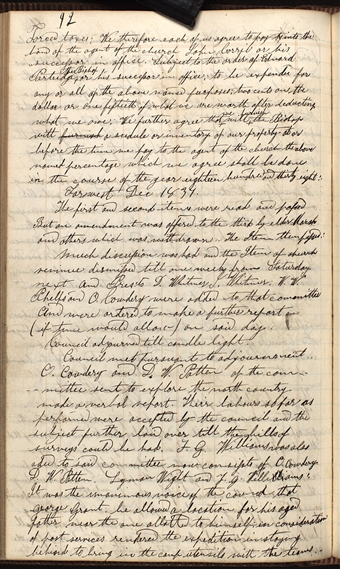 92
Forces tores; We therefore each of us agree to pay into the
hand of the agent of the church John Corril or his
successor in office. Subject to the order of Edward
the Bishop
Partridge or his successor in office; to be expended for
any or all of the above named purposes; two cents one the
dollar or one fiftieth of what we are worth after deducting
what we owe: We further agree that we will, the Bishop
with a schedule or inventory of our property at or
before the time we pay to the agent of the church the above
named percentage which we agree shall be done
in the course of the year eighteen hundred thirty eight:
Far west Dec 1837
The first and second items were read and passed
But an amendment was offered to the third by elder Marsh
and others which was withdrawn. The Item then passed:
Much discussion was had on the Item of church
revenue dismissed till one week from Saturday
next. And Presdts D Whitmer, J. Whitmer, W. W.
Phelps and O. Cowdery were added to that committee
and were ordered to make a further report on
(if time would allow) on said day.
Council adjourned till candle light.
Council met pursuant to adjournment.
O. Cowdery and D. W. Patten of the com-
mittee sent to explore the north country
made a verbal report. Their labours so far as
performed were accepted by the council and the
subject further laid over till the bills of
surveys could be had. F. G. Williams was also
added to said committee now consists of O. Cowdery
D W. Patten. Lyman Wight and F. G. Williams:
It was the unanimous voice of the council that
george Grant, be allowed a location for his aged
father near the one allotted to himself in consideration
of past services rendered the expedition in staying
behind to bring in the camp utensils with the teams.